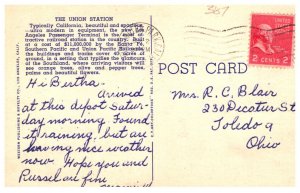 THE UNION STATION
Typically California, beautiful and spacious,
ultra modern in equipment, the new Los
Angeles Passenger Terminal is the most at-
tractive railroad station in the country. Built
at a cost of $11,000,000 by the Santa Fe,
Southern Pacific and Union Pacific Railroads,
the buildings and tracks cover 40 acres of
ground, in a setting that typifies the glamour of
the Southland, where arriving visitors will
see orange trees, olive and pepper trees,
palms and beautiful flowers.
387
Hi Bertha:
Arrived
at this depot Satur
day morning. Found
it raining, but are
hav ing nice weather
now. Hope you and
Russel are fine
POST CARD
Mrs. R. C. Blair
230 Decatur St
Toledo 9
Ohio
2 CENTS 2